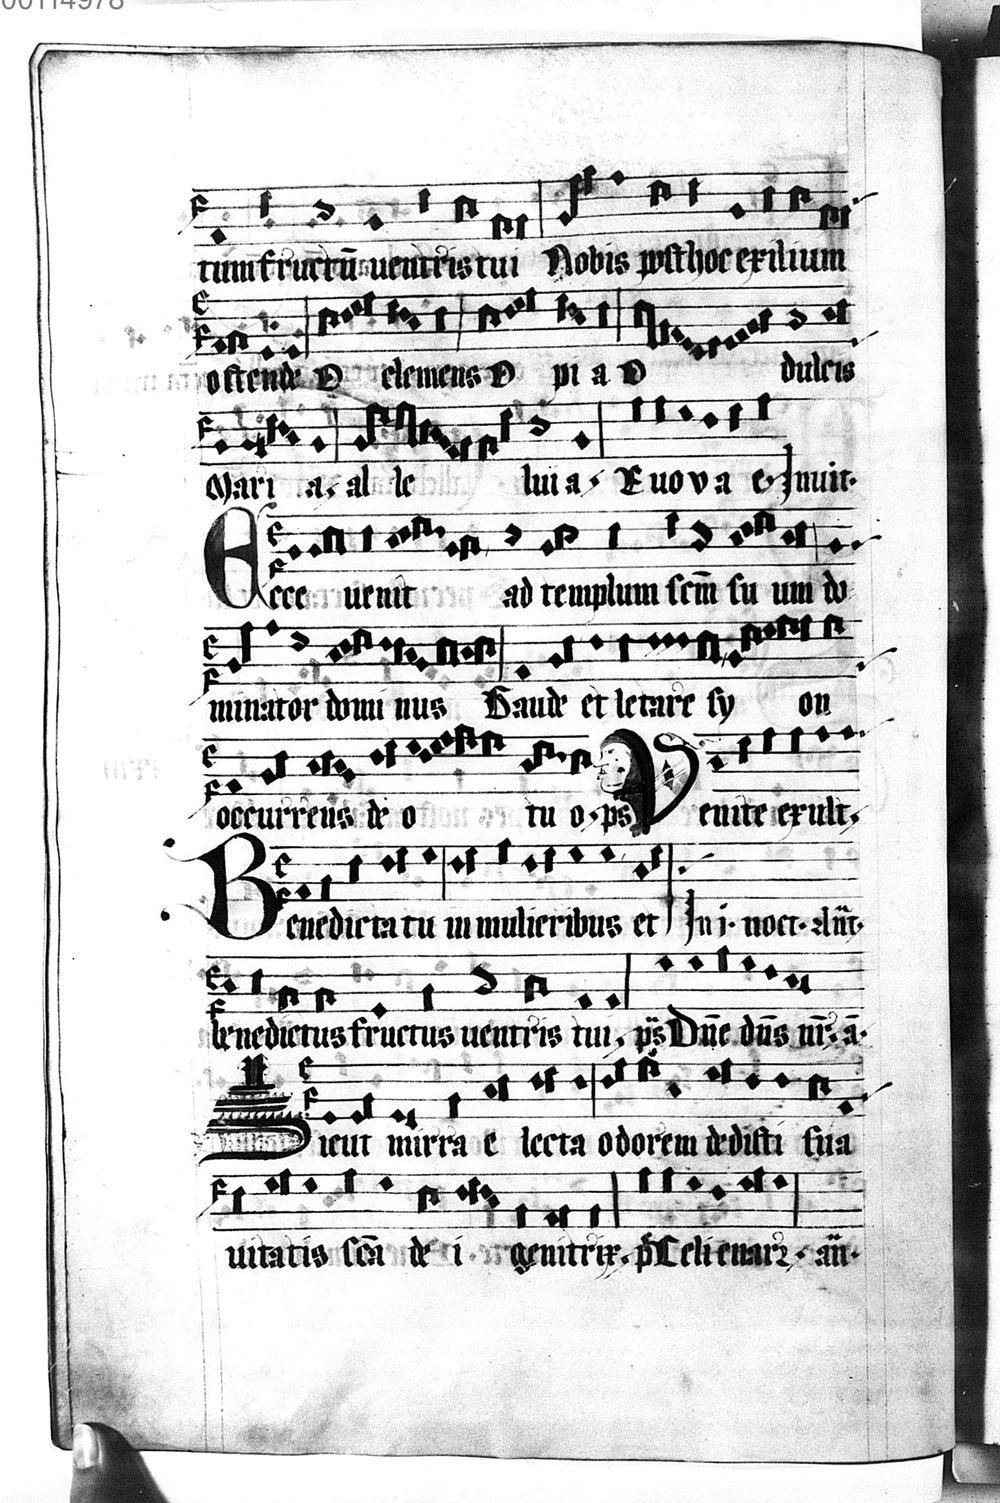 00114978
tum fructū uentris tui Nobis post hoc exilium
ostende O clemens O pi a O dulcis
Mari a, al le lui a, Euovae. Inuit.
Ecce uenit ad templum scm̄ su um do
minator domi nus Gaude et letare sy on
occurrens de o tu o. ps Venite exult,
Benedicta tu in mulieribus et In i. noct. an̄t.
benedictus fructus uentris tui, ps̄ Dn̄e dn̄s nr̄, ā.
Sicut mirra e lecta odorem dedisti sua
uitatis scā de i genitrix. p̄ Celi enarr. an̄.